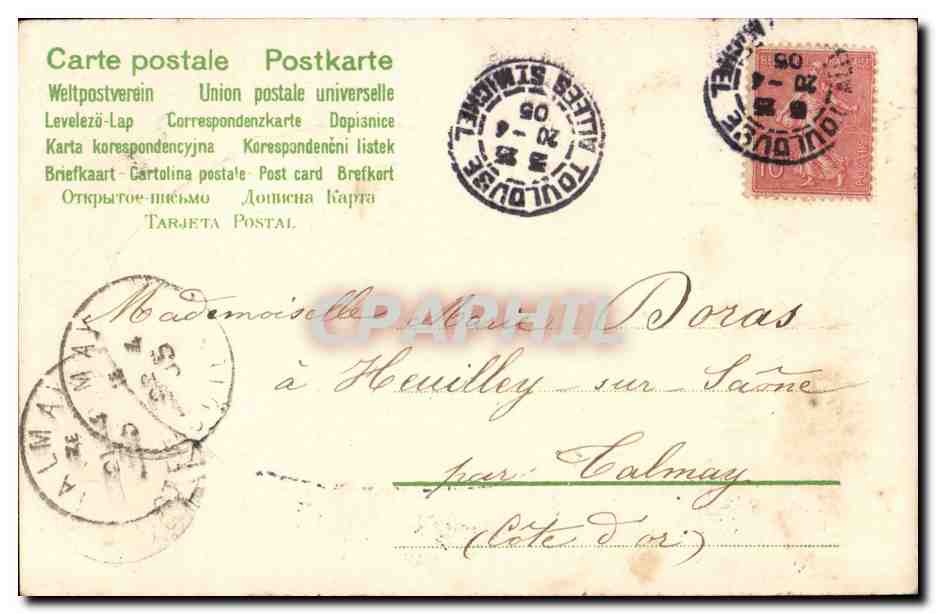 Carte postale Postkarte
Weltpostverein Union postale universelle
Levelező-Lap Correspondenzkarte Dopisnice
Karta korespondencyjna Korespondenční listek
Briefkaart - Cartolina postale - Post card Brefkort
Открытое-письмо Дописна Карта
TARJETA POSTAL
TOULOUSE
ALLÉES ST MICHEL
20 - 4
05
TOULOUSE
20 - 4
05
10
CPAPHIL
Mademoiselle Marie Boras
à Heuilley-sur-Saône
par Talmay
(Côte d'or)
TALMAY